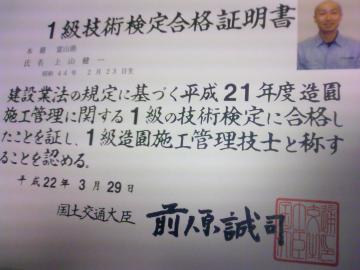 1級技術検定合格証明書
本籍 富山県
氏名 上山健一
昭和44年2月23日生
建設業法の規定に基づく平成21年度造園
施工管理に関する1級の技術検定に合格し
たことを証し、1級造園施工管理技士と称す
ることを認める。
平成22年3月29日
国土交通大臣 前原誠司